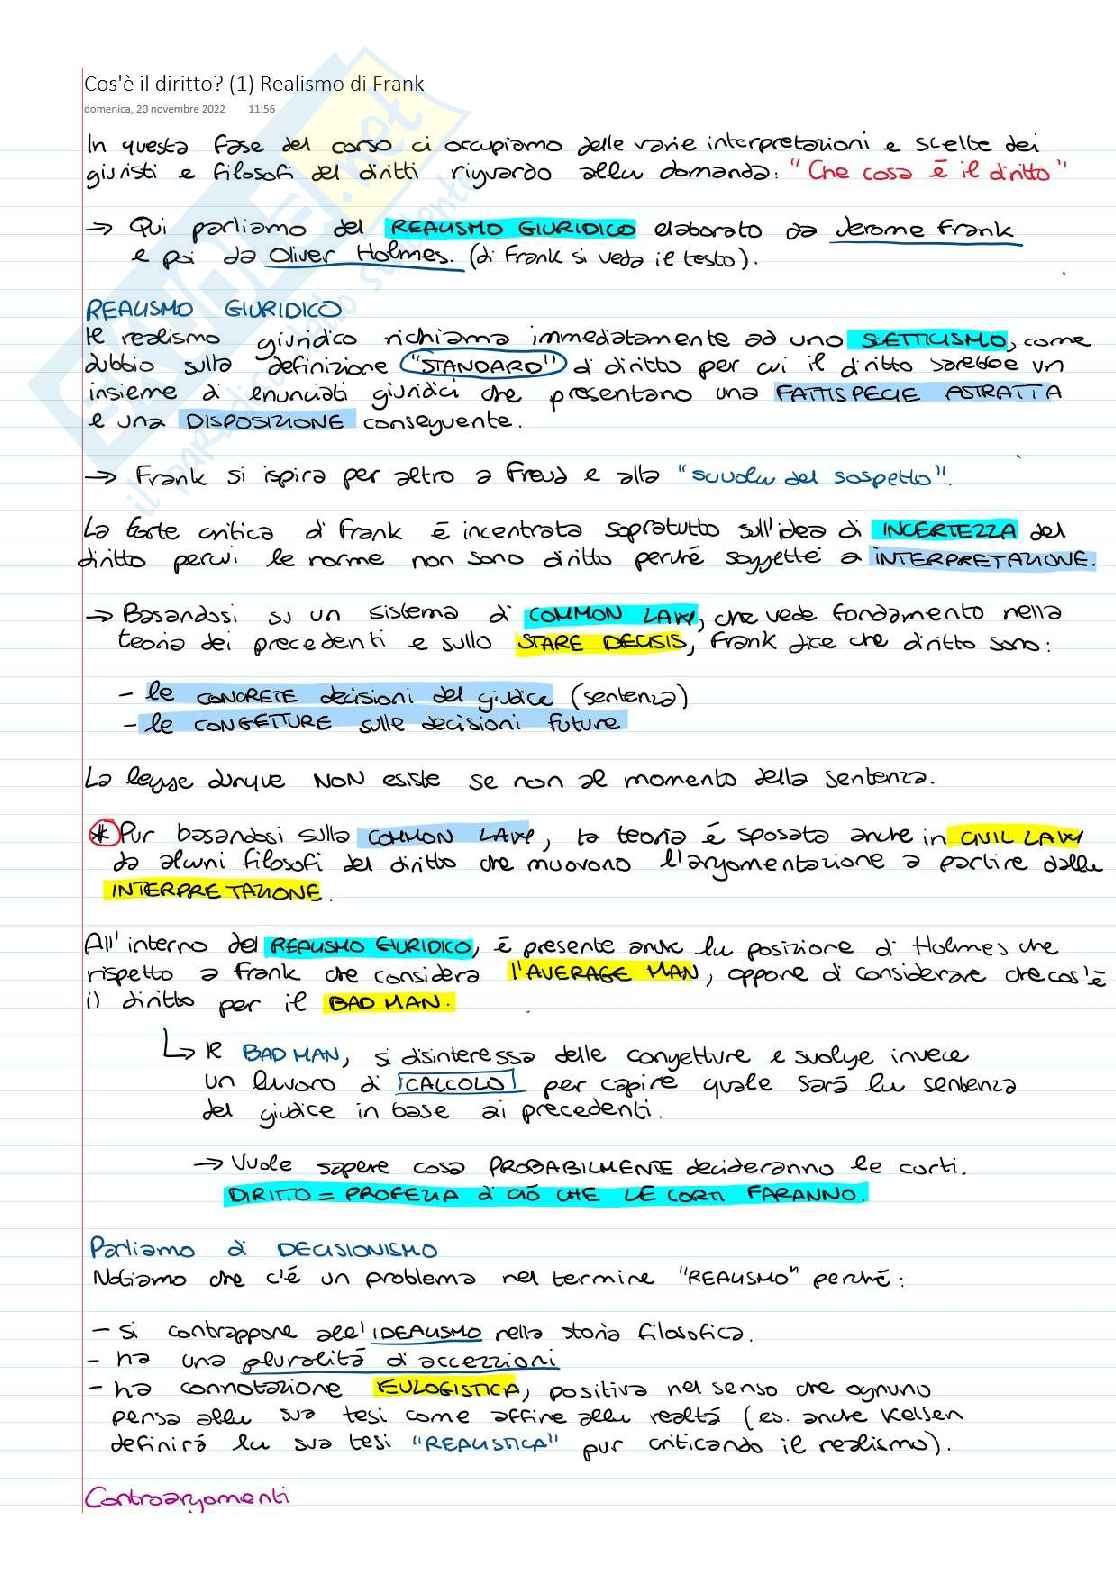 Cos'è il diritto? (1) Realismo di Frank
domenica, 20 novembre 2022 11:56
In questa fase del corso ci occupiamo delle varie interpretazioni e scelte dei
giuristi e filosofi del diritti riguardo alla domanda: "Che cosa è il diritto"
→ Qui parliamo del REALISMO GIURIDICO elaborato da Jerome Frank
e poi da Oliver Holmes. (di Frank si veda il testo).
REALISMO GIURIDICO
Il realismo giuridico richiama immediatamente ad uno SCETTICISMO, come
dubbio sulla definizione "STANDARD" di diritto per cui il diritto sarebbe un
insieme di enunciati giuridici che presentano una FATTISPECIE ASTRATTA
e una DISPOSIZIONE conseguente.
→ Frank si ispira per altro a Freud e alla "scuola del sospetto".
La forte critica di Frank è incentrata sopratutto sull'idea di INCERTEZZA del
diritto percui le norme non sono diritto perché soggette a INTERPRETAZIONE.
→ Basandosi su un sistema di COMMON LAW, che vede fondamento nella
teoria dei precedenti e sullo STARE DECISIS, Frank dice che diritto sono:
- le CONCRETE decisioni del giudice (sentenza)
- le CONGETTURE sulle decisioni future
La legge dunque NON esiste se non al momento della sentenza.
* Pur basandosi sulla COMMON LAW, la teoria è sposata anche in CIVIL LAW
da alcuni filosofi del diritto che muovono l'argomentazione a partire dalla
INTERPRETAZIONE.
All'interno del REALISMO GIURIDICO, è presente anche la posizione di Holmes che
rispetto a Frank che considera l'AVERAGE MAN, oppone di considerare che cos'è
il diritto per il BAD MAN.
↳ Il BAD MAN, si disinteressa delle congetture e svolge invece
un lavoro di CALCOLO per capire quale sarà la sentenza
del giudice in base ai precedenti.
→ Vuole sapere cosa PROBABILMENTE decideranno le corti.
DIRITTO = PROFEZIA di CIÒ CHE LE CORTI FARANNO.
Parliamo di DECISIONISMO
Notiamo che c'è un problema nel termine "REALISMO" perché:
- si contrappone all'IDEALISMO nella storia filosofica.
- ha una pluralità di accezzioni
- ha connotazione EULOGISTICA, positiva nel senso che ognuno
pensa alla sua tesi come affine alla realtà (es. anche Kelsen
definirà la sua tesi "REALISTICA" pur criticando il realismo).
Controargomenti